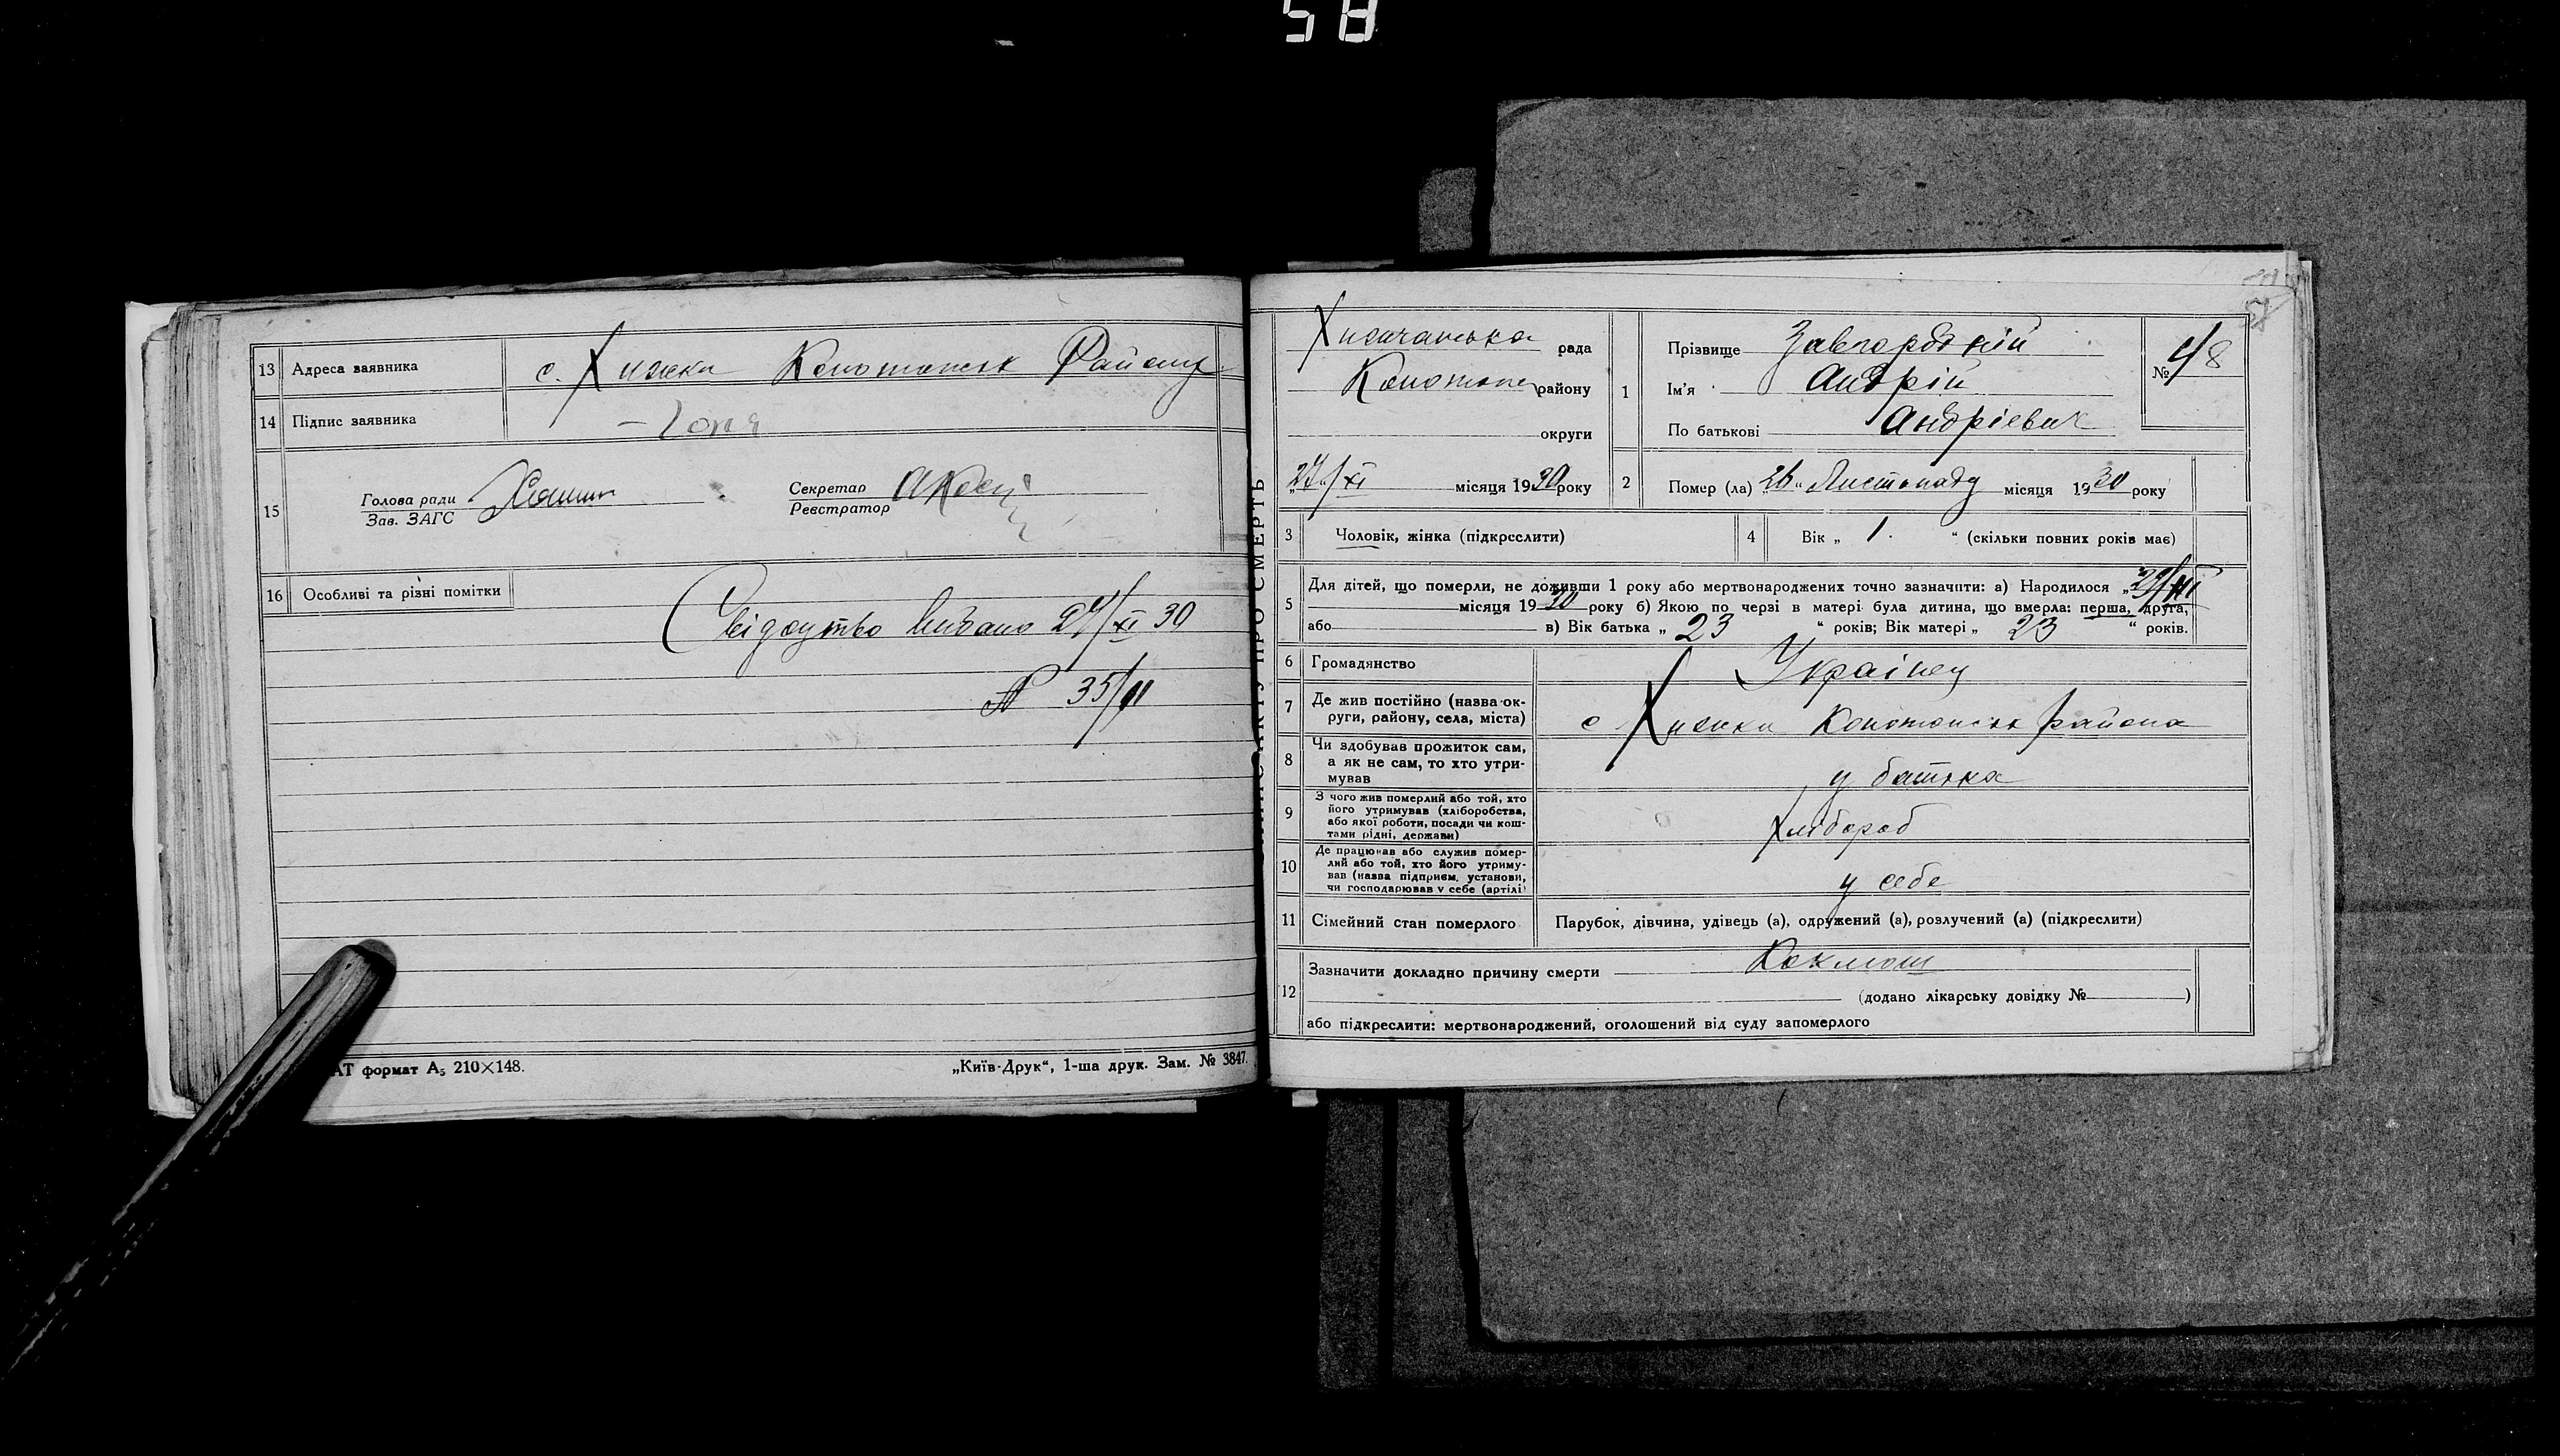 58
13 Адреса заявника с. Хижки Конотопськ Району
14 Підпис заявника
15 Голова ради
Зав. ЗАГС
Секретар
Реєстратор
16 Особливі та різні помітки
Свідоцтво видано 27/XI 30
№ 35/11
формат А5 210×148.
„Київ-Друк“, 1-ша друк. Зам. № 3847.
ПРО СМЕРТЬ
Хижчанська рада
Конотопс району
округи
„27“/XI місяця 1930 року
1 Прізвище Завгородній
Ім'я Андрій
По батькові Андрієвич
№ 48
2 Помер (ла) „26“ Листопаду місяця 1930 року
3 Чоловік, жінка (підкреслити)
4 Вік „ 1. “ (скільки повних років має)
5 Для дітей, що померли, не доживши 1 року або мертвонароджених точно зазначити: а) Народилося
місяця 1930 року б) Якою по черзі в матері була дитина, що вмерла: перша, друга,
або в) Вік батька „ 23 “ років; Вік матері „ 23 “ років.
6 Громадянство Українец
7 Де жив постійно (назва ок-
руги, району, села, міста) с Хижки Конотопськ района
8 Чи здобував прожиток сам,
а як не сам, то хто утри-
мував у батька
9 З чого жив померлий або той, хто
його утримував (хліборобства,
або якої роботи, посади чи кош-
тами рідні, держави) Хлібороб
10 Де працював або служив помер-
лий або той, хто його утриму-
вав (назва підприєм. установи,
чи господарював у себе (артілі) у себе
11 Сімейний стан померлого Парубок, дівчина, удівець (а), одружений (а), розлучений (а) (підкреслити)
12 Зазначити докладно причину смерти Коклюш
(додано лікарську довідку № )
або підкреслити: мертвонароджений, оголошений від суду запомерлого